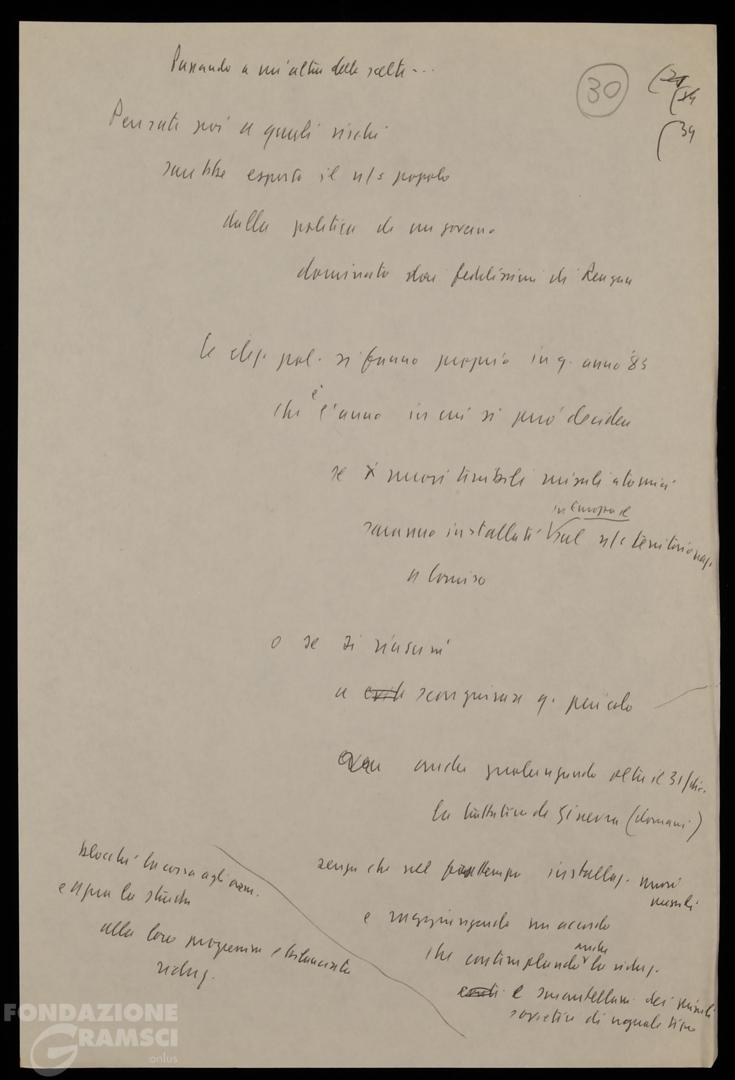 Passando a un'altra delle scelte...
30
34
Pensate voi a quali rischi
sarebbe esposto il n/s popolo
dalla politica di un governo
dominato dai fedelissimi di Reagan
Le elez. pol. si fanno proprio in q. anno '83
che è l'anno in cui si può decidere
se nuovi terribili missili atomici
in Europa e
saranno installati sul n/s territorio naz.
a Comiso
o se si riuscirà
a scongiurare q. pericolo
anche prolungando oltre il 31/dic.
la trattativa di Ginevra (domani)
senza che nel frattempo installaz. nuovi
missili
e raggiungendo un accordo
che contemplando anche la riduz.
e smantellam. dei missili
sovietici di uguale tipo
blocchi la corsa agli arm.
e apra la strada
alla loro progressiva e bilanciata
riduz.
FONDAZIONE
GRAMSCI
onlus